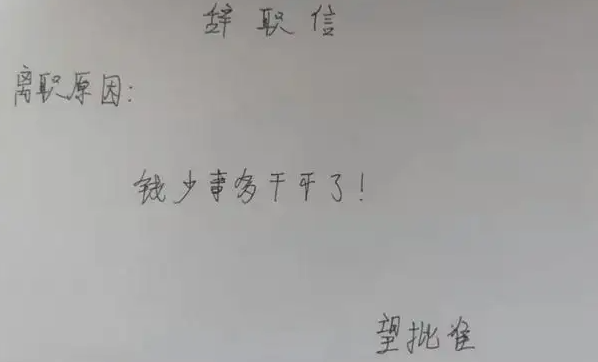 辞职信
离职原因:
钱少事多干平了!
望批准